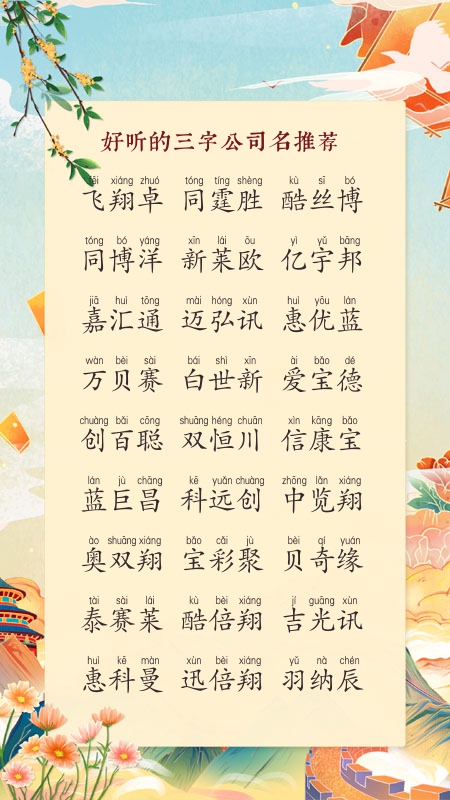 好听的三字公司名推荐
fēi xiáng zhuó tóng tíng shèng kù sī bó
飞翔卓 同霆胜 酷丝博
tóng bó yáng xīn lái ōu yì yǔ bāng
同博洋 新莱欧 亿宇邦
jiā huì tōng mài hóng xùn huì yōu lán
嘉汇通 迈弘讯 惠优蓝
wàn bèi sài bái shì xīn ài bǎo dé
万贝赛 白世新 爱宝德
chuàng bǎi cōng shuāng héng chuān xìn kāng bǎo
创百聪 双恒川 信康宝
lán jù chāng kē yuǎn chuàng zhōng lǎn xiáng
蓝巨昌 科远创 中览翔
ào shuāng xiáng bǎo cǎi jù bèi qí yuán
奥双翔 宝彩聚 贝奇缘
tài sài lái kù bèi xiáng jí guāng xùn
泰赛莱 酷倍翔 吉光讯
huì kē màn xùn bèi xiáng yǔ nà chén
惠科曼 迅倍翔 羽纳辰